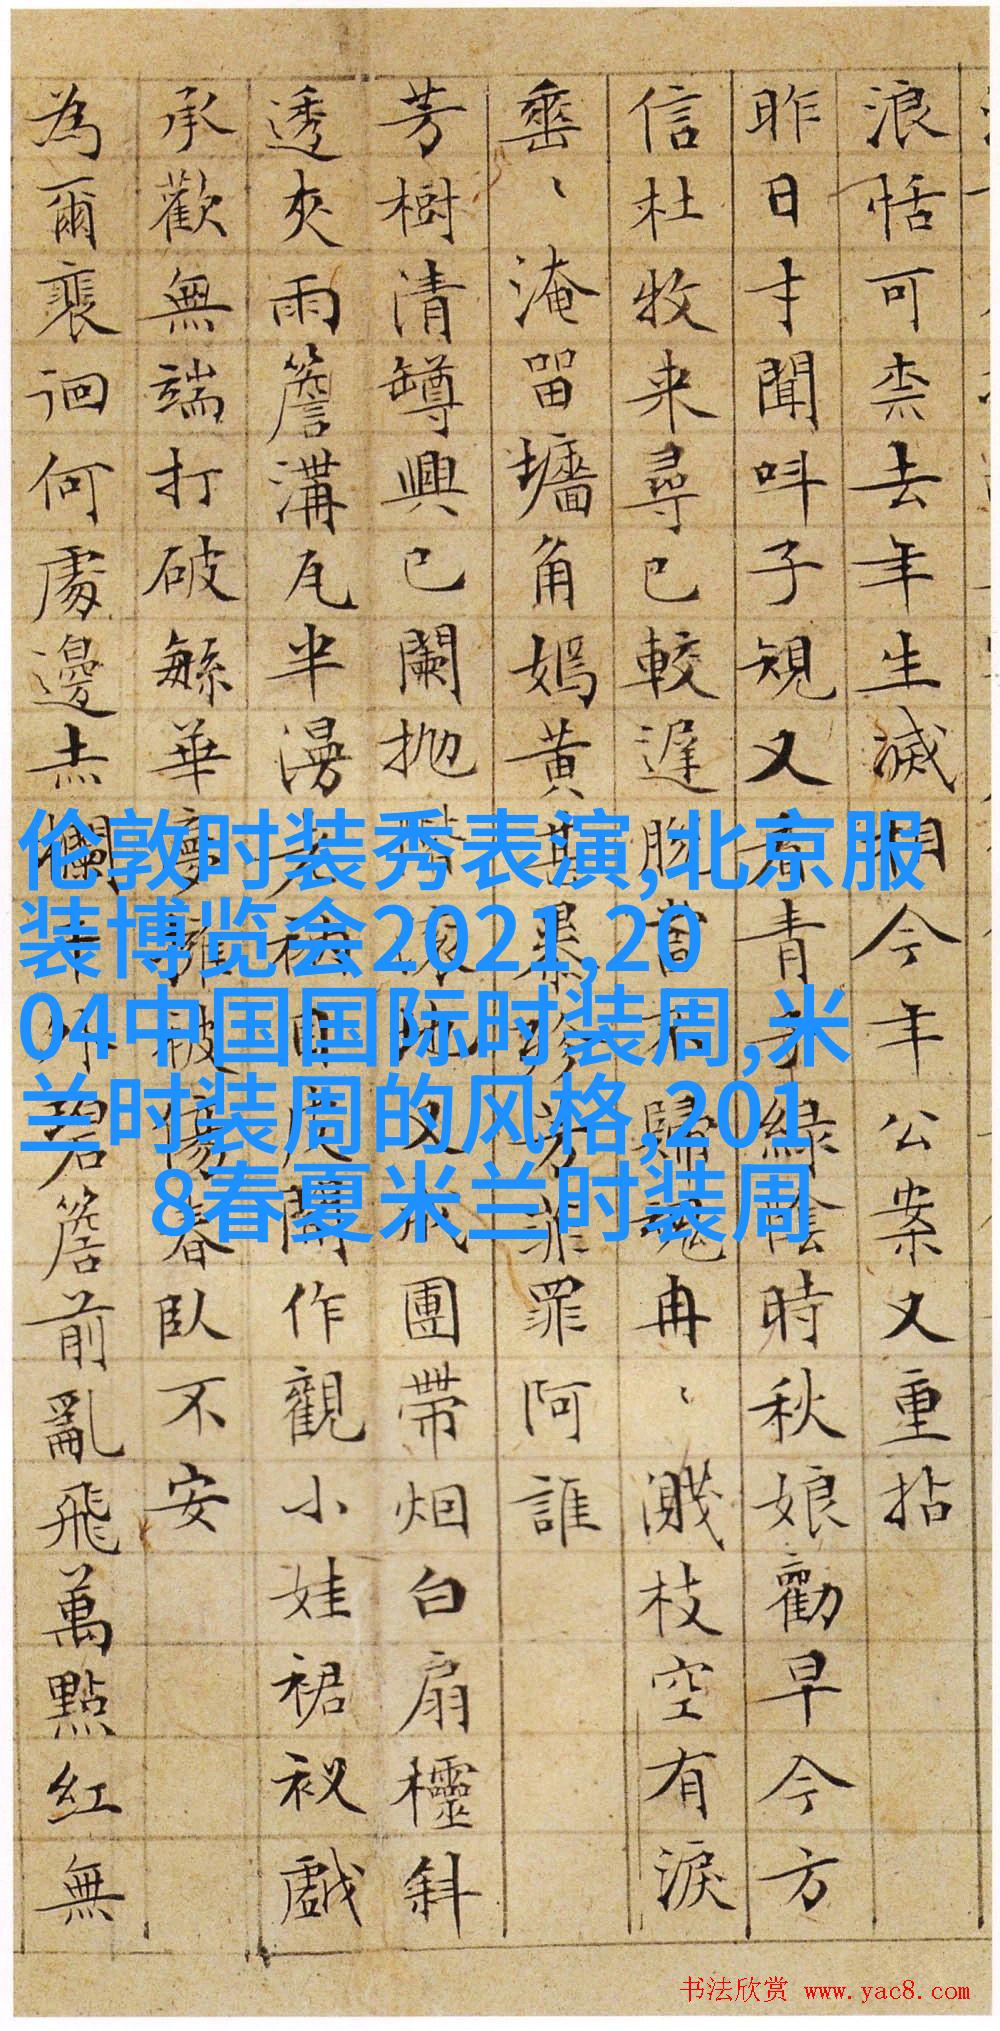 浪恬可柰去年生滅相今年公案又重拈
昨日才聞呌子規又看青子綠陰時秋娘勸早今方
信杜牧来尋已較遲 歸魂冉、濺枝空有淚
垂、淹留墻角嫣黃甚暴殄芳菲罪阿誰
芳樹清罇興已闌抛 又成團帶烟白扇櫺斜
透夾雨簷溝瓦半漫老衲 作觀小娃裙衩戲
承歡無端打破繁華夢擁被傷春臥不安
為爾裵徊何處邊赤欄干外碧簷前亂飛萬點紅無
伦敦时装秀表演,北京服
装博览会2021,20
04中国国际时装周,米
兰时装周的风格,201
8春夏米兰时装周
书法欣赏 www.yac8.com